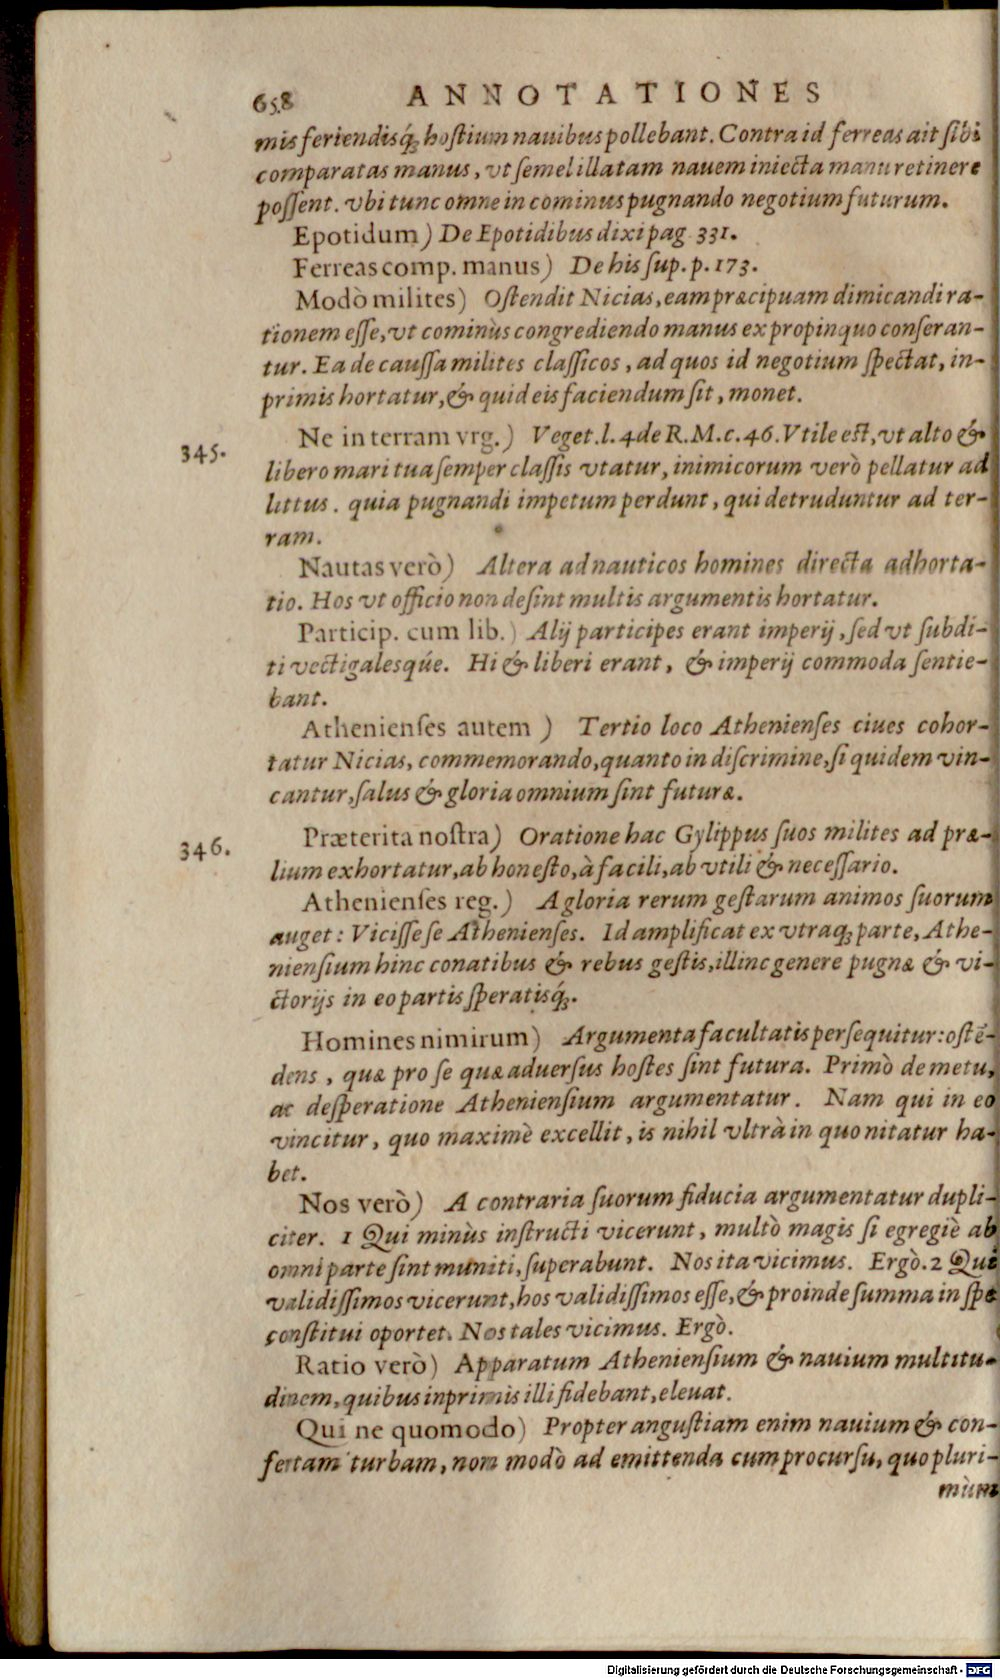 658 ANNOTATIONES
mis feriendisq́; hostium nauibus pollebant. Contra id ferreas ait sibi
comparatas manus, vt semel illatam nauem iniecta manu retinere
possent. vbi tunc omne in cominus pugnando negotium futurum.
Epotidum) De Epotidibus dixi pag 331.
Ferreas comp. manus) De his sup. p. 173.
Modò milites) Ostendit Nicias, eam præcipuam dimicandi ra-
tionem esse, vt cominùs congrediendo manus ex propinquo conseran-
tur. Ea de caussa milites classicos, ad quos id negotium spectat, in-
primis hortatur, & quid eis faciendum sit, monet.
345. Ne in terram vrg.) Veget. l. 4 de R. M. c. 46. Vtile est, vt alto &
libero mari tua semper classis vtatur, inimicorum verò pellatur ad
littus. quia pugnandi impetum perdunt, qui detruduntur ad ter-
ram.
Nautas verò) Altera ad nauticos homines directa adhorta-
tio. Hos vt officio non desint multis argumentis hortatur.
Particip. cum lib.) Alij participes erant imperij, sed vt subdi-
ti vectigalesqúe. Hi & liberi erant, & imperij commoda sentie-
bant.
Athenienses autem) Tertio loco Athenienses ciues cohor-
tatur Nicias, commemorando, quanto in discrimine, si quidem vin-
cantur, salus & gloria omnium sint futuræ.
346. Præterita nostra) Oratione hac Gylippus suos milites ad præ-
lium exhortatur, ab honesto, à facili, ab vtili & necessario.
Athenienses reg.) A gloria rerum gestarum animos suorum
auget: Vicisse se Athenienses. Id amplificat ex vtraq; parte, Athe-
niensium hinc conatibus & rebus gestis, illinc genere pugnæ & vi-
ctorijs in eo partis speratisq́;.
Homines nimirum) Argumenta facultatis persequitur: ostē-
dens, quæ pro se quæ aduersus hostes sint futura. Primò de metu,
ac desperatione Atheniensium argumentatur. Nam qui in eo
vincitur, quo maximè excellit, is nihil vltrà in quo nitatur ha-
bet.
Nos verò) A contraria suorum fiducia argumentatur dupli-
citer. 1 Qui minùs instructi vicerunt, multò magis si egregiè ab
omni parte sint muniti, superabunt. Nos ita vicimus. Ergò. 2 Qui
validissimos vicerunt, hos validissimos esse, & proinde summa in spe
constitui oportet. Nos tales vicimus. Ergò.
Ratio verò) Apparatum Atheniensium & nauium multitu-
dinem, quibus inprimis illi fidebant, eleuat.
Qui ne quomodo) Propter angustiam enim nauium & con-
fertam turbam, non modò ad emittenda cum procursu, quo pluri-
mùm
Digitalisierung gefördert durch die Deutsche Forschungsgemeinschaft - DFG